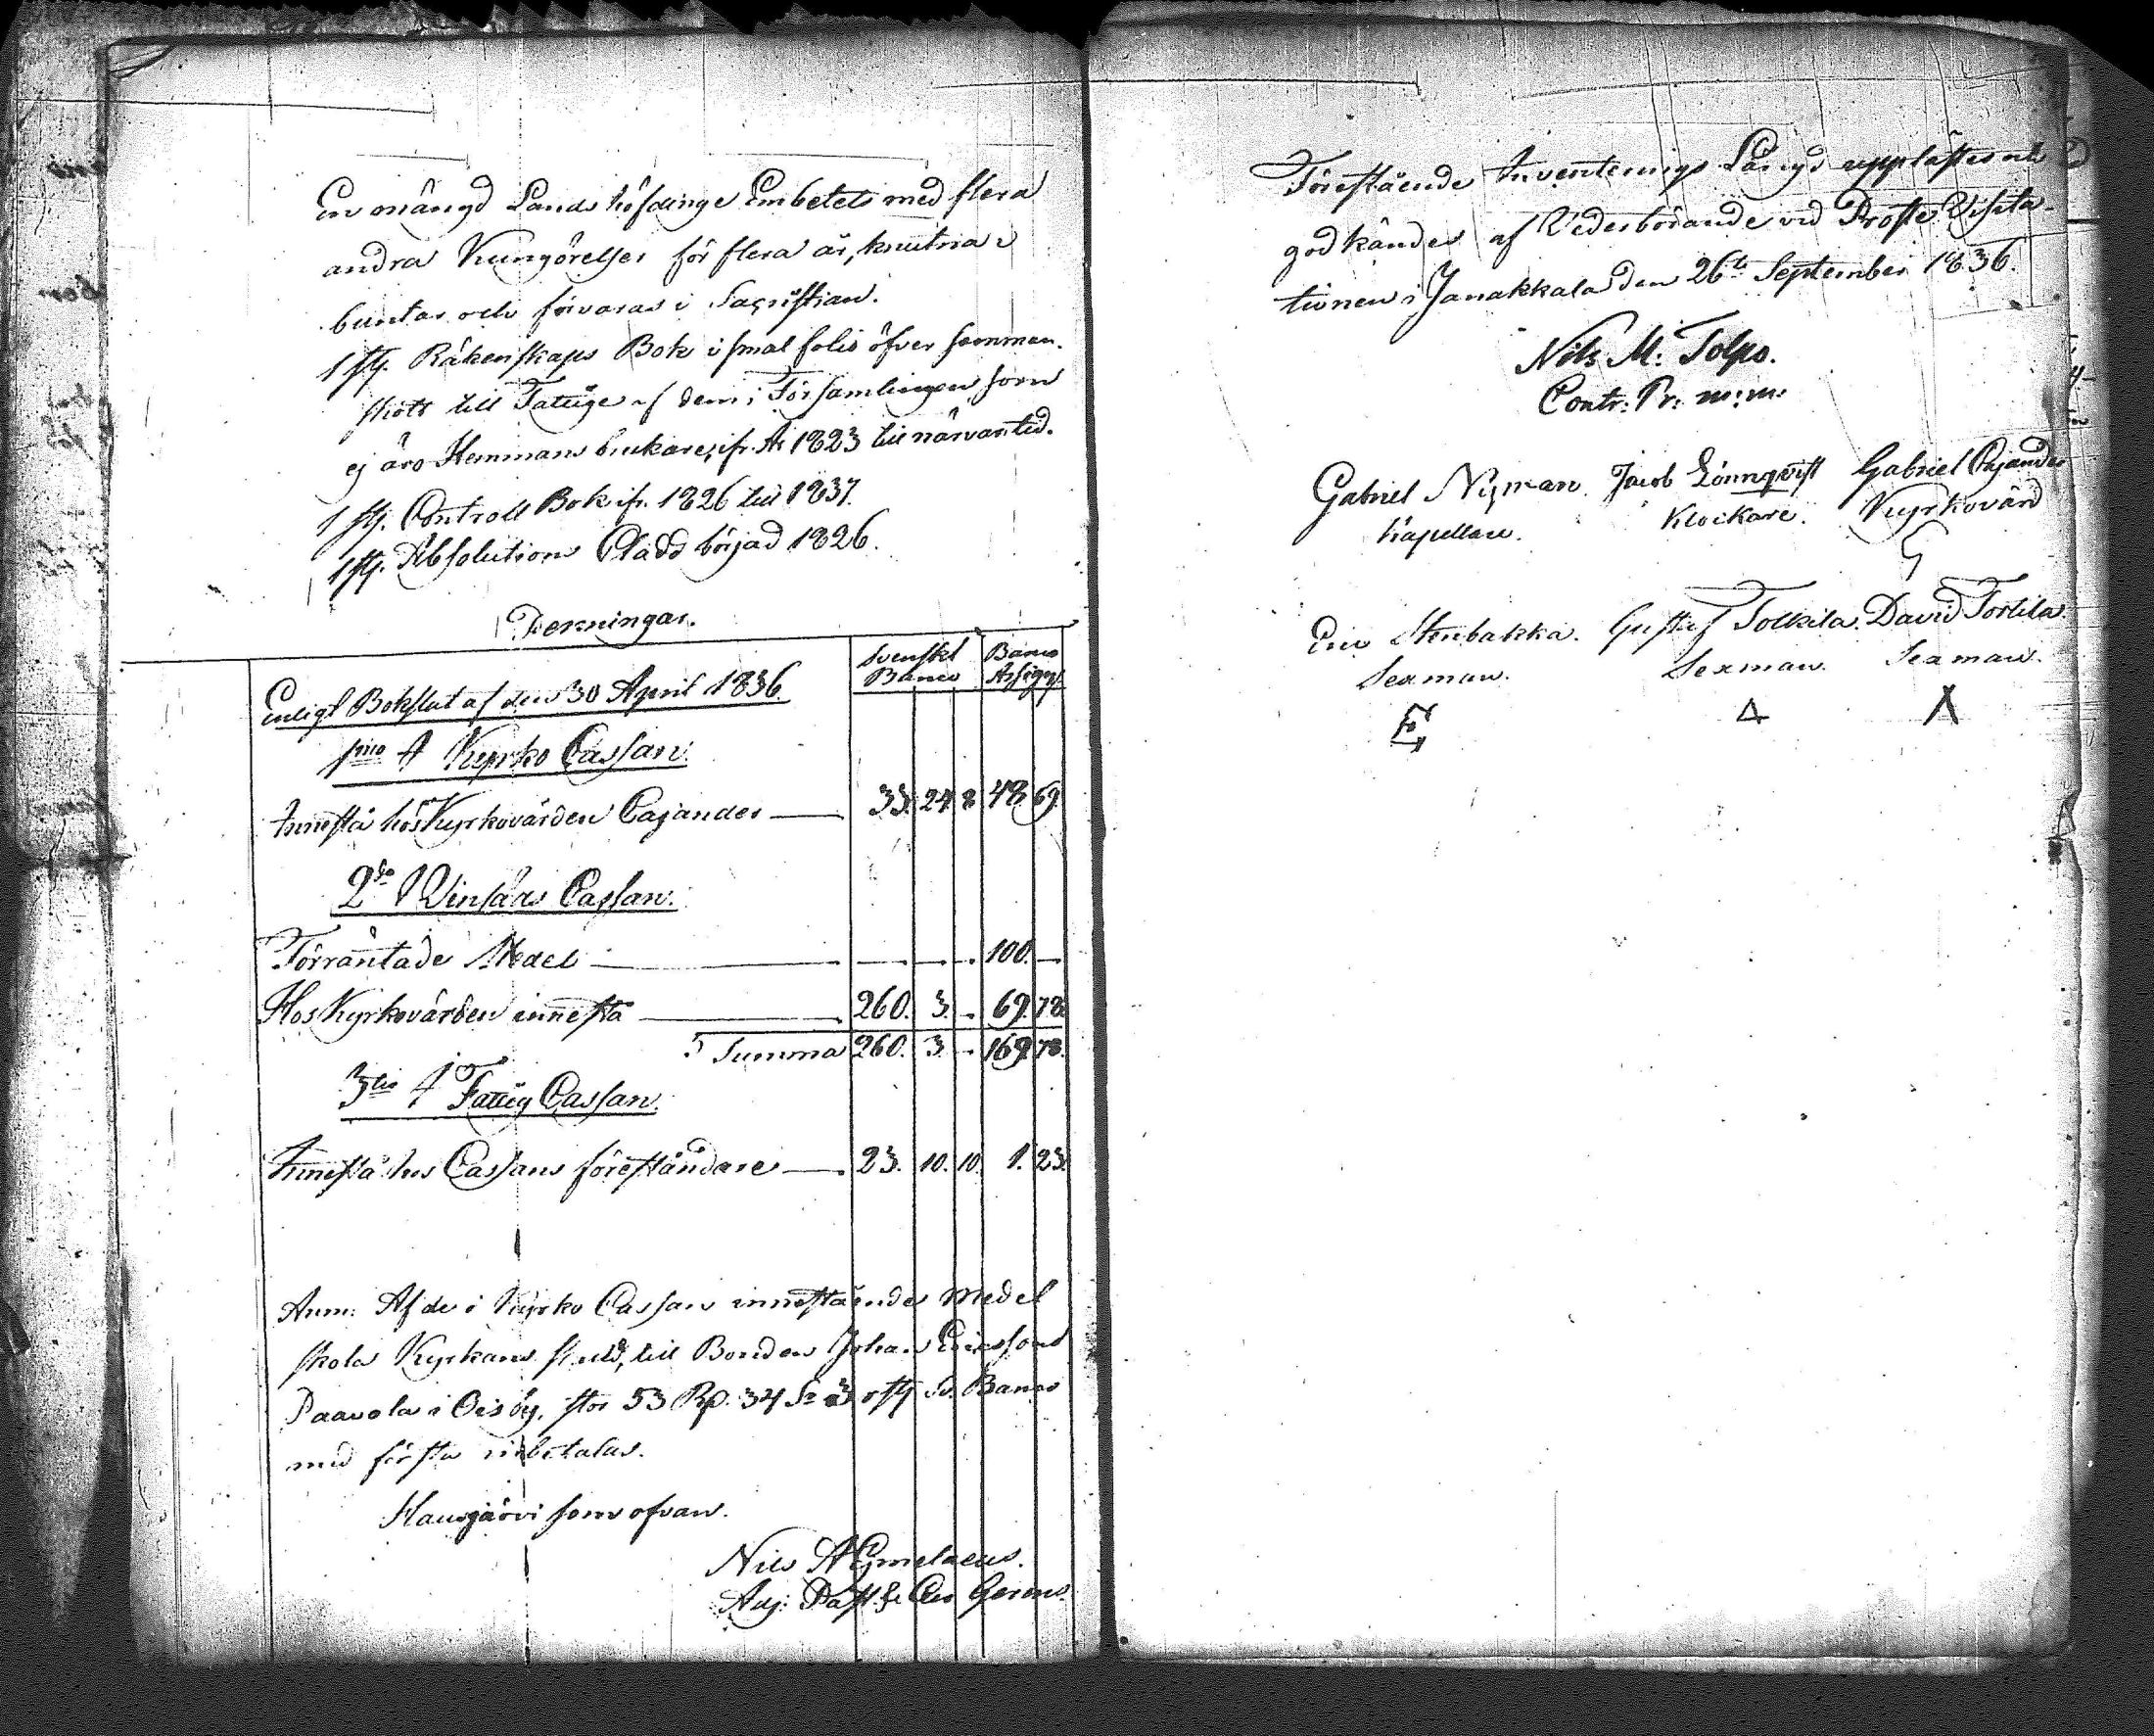 En mängd Landshöfdinge Embetets med flera
andra Kungörelser för flera år, knutna i
buntar och förvaras i Sacristian.
1 st. Räkenskaps Bok i smal folio öfver samman-
skott till Fattige af dem i Församlingen som
ej äro Hemmans brukare, ifr. År 1823 till närvar. tid.
1 st. Controll Bok ifr. 1826 till 1837.
1 st. Absolution Cladd börjad 1826.
Penningar.
Svenskt Banco
Banco Assign.
Enligt Bokslut af den 30 April 1836.
pmo Kyrko Cassan.
Innestå hos Kyrkovärden Cajander — 33. 24. 8 48 69.
2do Winfårs Cassan.
Förräntade Medel — — — . 100. —
Hos Kyrkovärden innestå — 260. 3. - 69. 78.
Summa 260. 3. - 169. 78.
3tio Fattig Cassan.
Innestå hos Cassans föreståndare — 23. 10. 10. 1. 23.
Anm: Af de i Kyrko Cassan innestående Medel
skola Kyrkans skuld, till Bonden Johan Ericsson
Paavola i Ois by, stor 53 Rd. 34 S. 3 rst. Sv. Banco
med första inbetalas.
Hausjärvi som ofvan.
Nils A Gmelaeus.
Adj. Past.
Förestående Inventerings Längd upplästes och
godkändes af Vederbörande vid Proste Visita-
tionen i Janakkala den 26te September 1836.
Nils M: Tolpo.
Contr: Pr: m:m:
Gabriel Nyman. Jacob Lönnqvist Gabriel Cajander
Kapellan. Klockare. Kyrkovärd
Eric Stenbakka. Gustaf Tolkila. David Tortila.
Sexman. Sexman. Sexman.